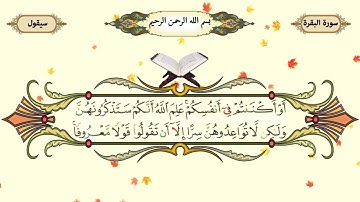 سورة البقرة
بسم الله الرحمن الرحيم
سيقول
أَوۡ أَكۡنَنتُمۡ فِيٓ أَنفُسِكُمۡۚ عَلِمَ ٱللَّهُ أَنَّكُمۡ سَتَذۡكُرُونَهُنَّ
وَلَٰكِن لَّا تُوَاعِدُوهُنَّ سِرًّا إِلَّآ أَن تَقُولُواْ قَوۡلٗا مَّعۡرُوفٗاۚ